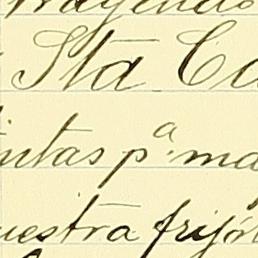 Sta Ca
intas pa. ma
uestra frijó